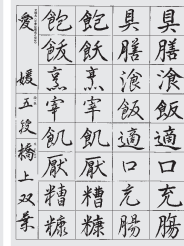 具膳飡飯適口充腸
具膳飡飯適口充腸
飽飫烹宰飢厭糟糠
飽飫烹宰飢厭糟糠
愛媛五段橋上双葉